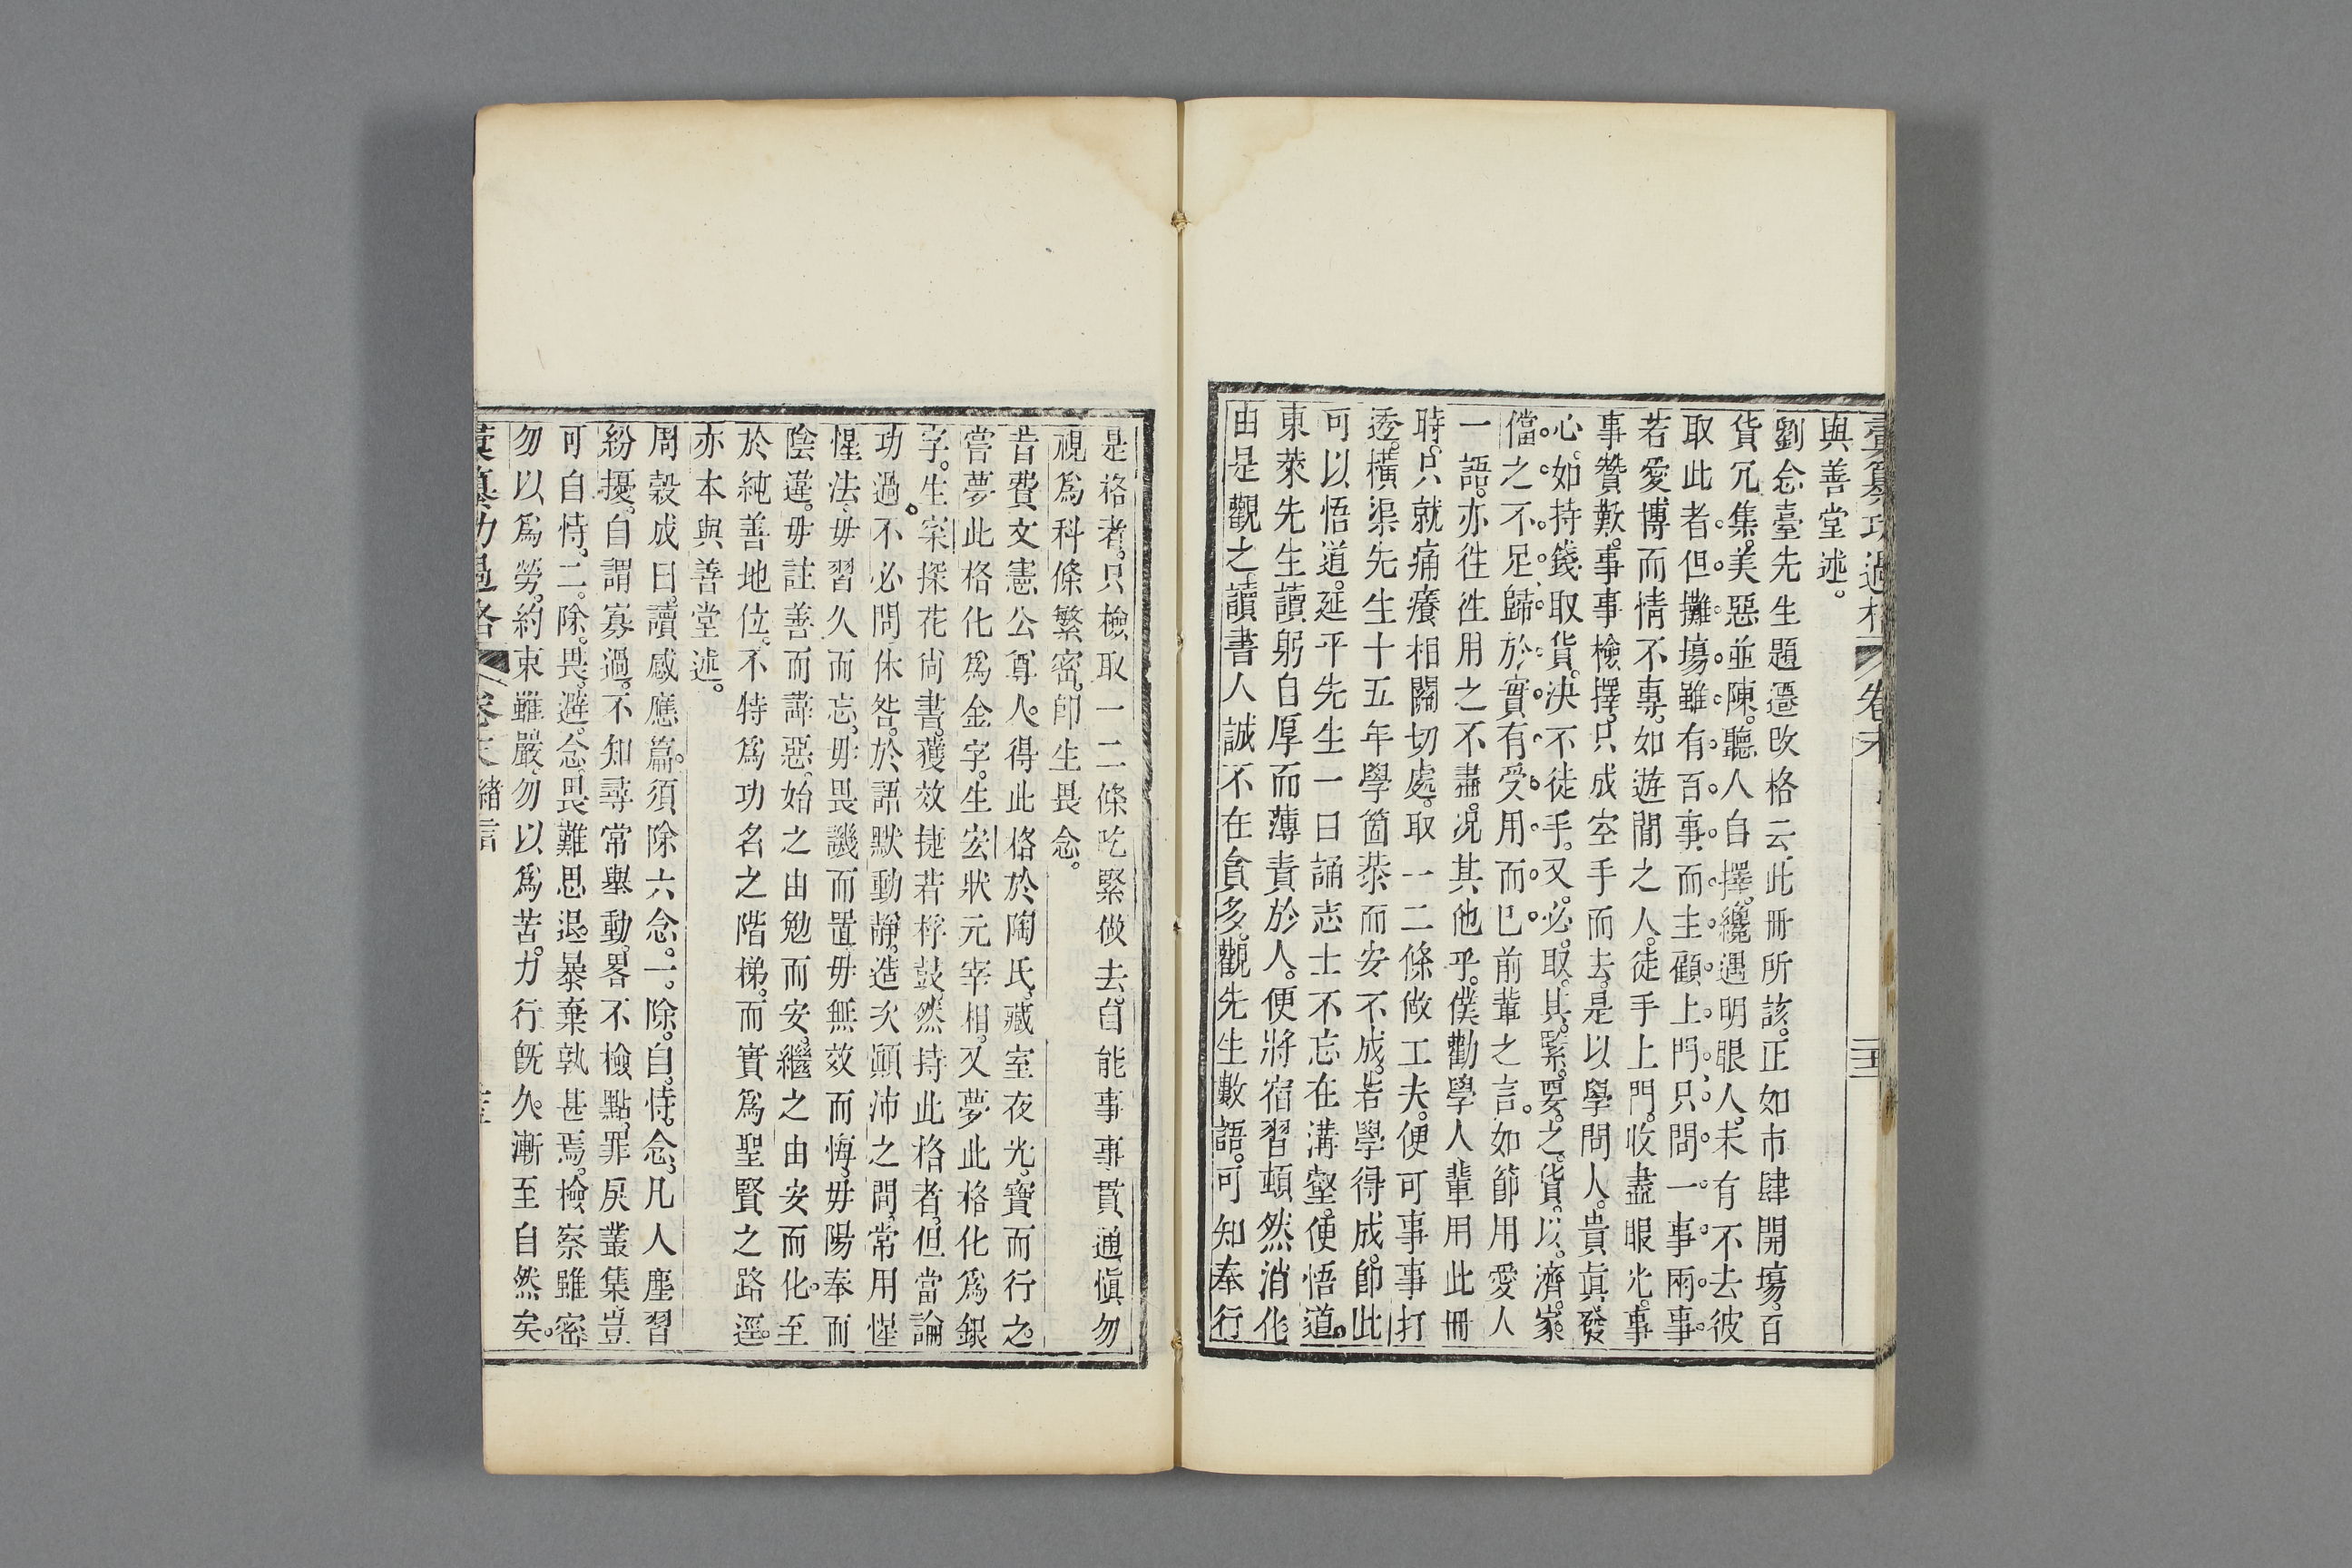 彙纂功過格 卷末
與善堂述。
劉念臺先生題遷改格云、此冊所該。正如市肆開塲。百
貨冗集。美惡並陳。聽人自擇。纔遇明眼人。未有不去彼
取此者。但攤塲雖有百事。而主顧上門。只問一事兩事。
若愛博而情不專。如遊閒之人。徒手上門。收盡眼光。事
事贊歎。事事檢擇。只成空手而去。是以學問人。貴眞發
心。如持錢取貨。決不徒手。又。必。取。其。緊。要。之。貨。以。濟。家。
儅。之。不。足。歸。於。實。有。受。用。而。已。前輩之言。如節用愛人
一語。亦徃徃用之不盡。況其他乎。僕勸學人輩用此冊
時。只就痛癢相關切處。取一二條做工夫。便可事事打
透。橫渠先生十五年學箇恭而安不成。若學得成。卽此
可以悟道。延平先生一日誦志士不忘在溝壑。便悟道。
東萊先生讀躬自厚而薄責於人。便將宿習頓然消化。
由是觀之。讀書人誠不在貪多。觀先生數語。可知奉行
是格者。只檢取一二條吃緊做去。自能事事貫通愼勿
視爲科條繁密。卽生畏念。
昔費文憲公尊人。得此格於陶氏。藏室夜光。寶而行之。
嘗夢此格化爲金字。生宏狀元宰相。又夢此格化爲銀
字。生寀探花尙書。獲效捷若桴鼓。然持此格者。但當論
功過。不必問休咎。於語默動靜。造次顚沛之間。常用惺
惺法。毋習久而忘。毋畏譏而置。毋無效而悔。毋陽奉而
陰違。毋註善而諱惡。始之由勉而安。繼之由安而化。至
於純善地位。不特爲功名之階梯。而實爲聖賢之路逕。
亦本與善堂述。
周榖成曰。讀感應篇。須除六念。一。除。自。恃。念。凡人塵習
紛擾。自謂寡過。不知尋常舉動。畧不檢點。罪戾叢集豈
可自恃。二。除。畏。避。念。畏難思退。暴棄孰甚焉。檢察雖密
勿以爲勞。約束雖嚴。勿以爲苦。力行旣久。漸至自然矣。
彙纂功過格 卷末 緒言